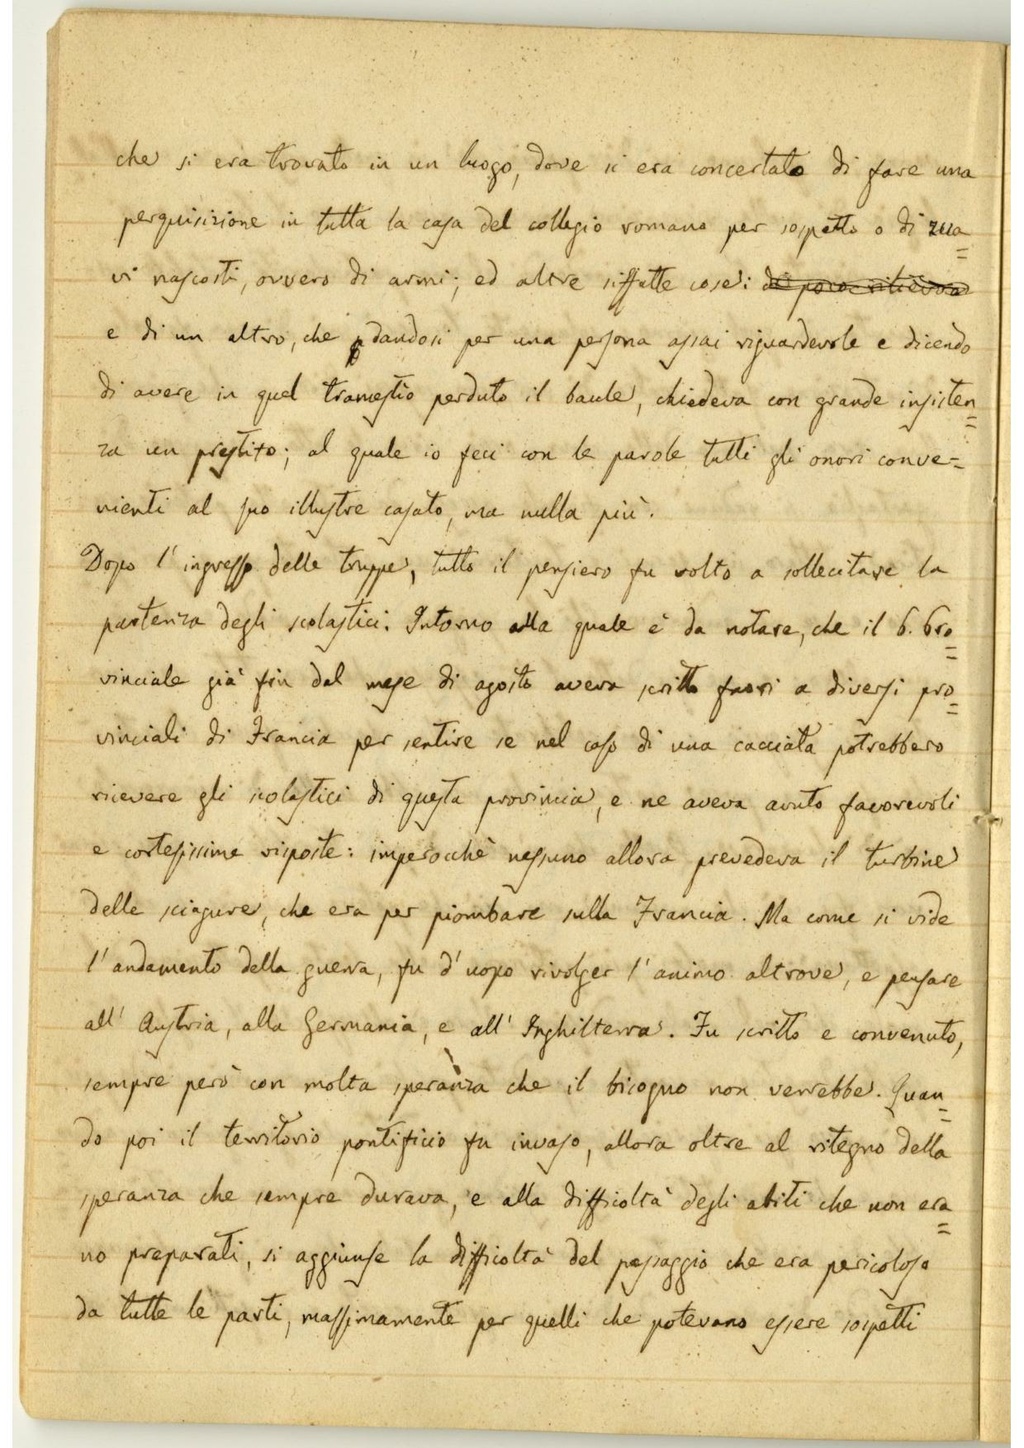 che si era trovato in un luogo, dove si era concertato di fare una
perquisizione in tutta la casa del collegio romano per sospetto o di zua=
vi nascosti, ovvero di armi; ed altre siffatte cose: di poco rilievo
e di un altro, che dandosi per una persona assai riguardevole e dicendo
di avere in quel tramestio perduto il baule, chiedeva con grande insisten=
za un prestito; al quale io feci con le parole tutti gli onori conve=
nienti al suo illustre casato, ma nulla più.
Dopo l'ingresso delle truppe, tutto il pensiero fu volto a sollecitare la
partenza degli scolastici. Intorno alla quale è da notare, che il P. Pro=
vinciale già fin dal mese di agosto aveva scritto fuori a diversi pro=
vinciali di Francia per sentire se nel caso di una cacciata potrebbero
ricevere gli scolastici di questa provincia, e ne aveva avuto favorevoli
e cortesissime risposte: imperocchè nessuno allora prevedeva il turbine
delle sciagure, che era per piombare sulla Francia. Ma come si vide
l'andamento della guerra, fu d'uopo rivolger l'animo altrove, e pensare
all'Austria, alla Germania, e all'Inghilterra. Fu scritto e convenuto,
sempre però con molta speranza che il bisogno non verrebbe. Quan=
do poi il territorio pontificio fu invaso, allora oltre al ritegno della
speranza che sempre durava, e alla difficoltà degli abiti che non era=
no preparati, si aggiunse la difficoltà del passaggio che era pericoloso
da tutte le parti, massimamente per quelli che potevano essere sospetti